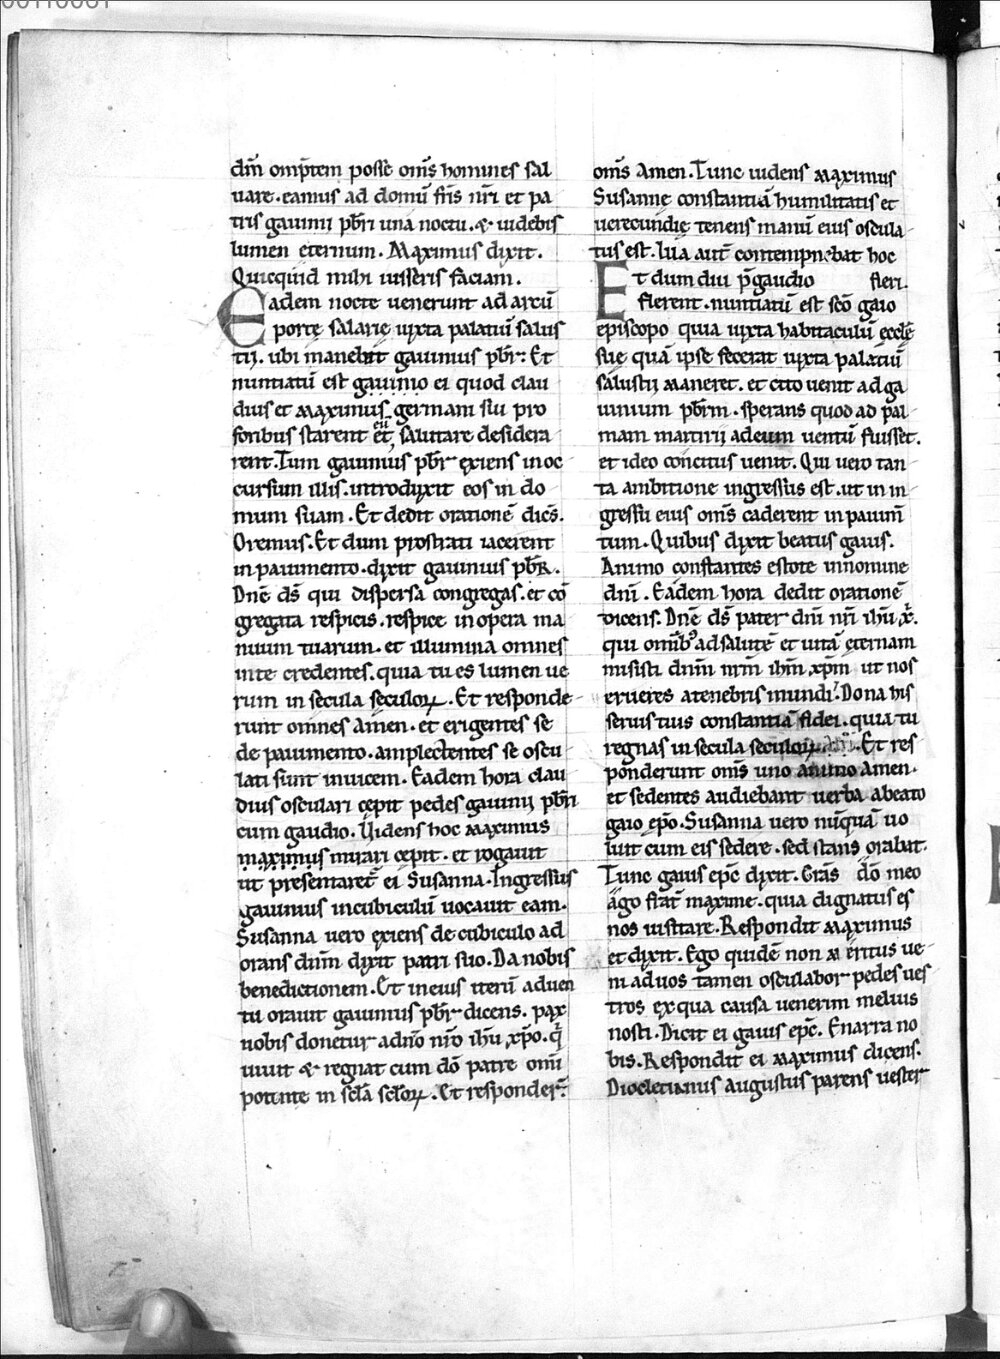 dm̄ omp̄tem posse om̄s homines sal
uare. eamus ad domū fr̄is nr̄i et pa
tris gauinii pb̄ri una noctu. & uidebis
lumen eternum. Maximus dixit.
Quicquid mihi iusseris faciam.
Eadem nocte uenerunt ad arcū
porte salarie iuxta palatiū salus
tii. ubi manebat gauinius pb̄r. Et
nuntiatū est gauinio ei quod clau
dius et maximus germani sui pro
foribus starent et eū salutare desidera
rent. Tum gauinius pb̄r exiens in oc
cursum illis. introduxit eos in do
mum suam. Et dedit orationē dicēs.
Oremus. Et dum prostrati iacerent
in pauimento. dixit gauinius pb̄r.
Dn̄e ds̄ qui dispersa congregas. et cō
gregata respicis. respice in opera ma
nuum tuarum. et illumina omnes
in te credentes. quia tu es lumen ue
rum in secula seculoꝝ. Et responde
runt omnes amen. et erigentes se
de pauimento. amplectentes se oscu
lati sunt inuicem. Eadem hora clau
dius osculari cepit pedes gauinii pb̄ri
cum gaudio. Uidens hoc maximus
maximus mirari cepit. et rogauit
ut presentaret̄ ei Susanna. Ingressus
gauinius in cubiculū uocauit eam.
Susanna uero exiens de cubiculo ad
orans dn̄m dixit patri suo. Da nobis
benedictionem. Et in eius iterū aduen
tu orauit gauinius pb̄r dicens. pax
nobis donetur a dn̄o nr̄o ih̄u xp̄o. q̄
uiuit & regnat cum dō patre omī
potente in sc̄la sc̄loꝝ. Et responder̄.
om̄s Amen. Tunc uidens maximus
Susanne constantiā humilitatis et
uerecundie tenens manū eius oscula
tus est. Illa aut̄ contempnebat hoc
fieri.
Et dum diu p̄ gaudio
flerent. nuntiatū est sc̄o gaio
episcopo quia iuxta habitaculū eccl̄e
sue quā ipse fecerat iuxta palatiū
salustii maneret. et cito uenit ad ga
uinium pb̄rm. sperans quod ad pal
mam martirii ad eum uentū fuisset.
et ideo concitus uenit. Qui uero tan
ta ambitione ingressus est. ut in in
gressu eius om̄s caderent in pauim̄
tum. Quibus dixit beatus gaius.
Animo constantes estote in nomine
dn̄i. Eadem hora dedit orationē
dicens. Dn̄e ds̄ pater dn̄i nr̄i ih̄u x̄.
qui omīb; ad salutē et uitā eternam
misisti dn̄m nr̄m ih̄m xp̄m ut nos
erueres a tenebris mundi. Dona his
seruis tuis constantiā fidei. quia tu
regnas in secula seculoꝝ. Et res
ponderunt om̄s uno animo amen.
et sedentes audiebant uerba a beato
gaio ep̄o. Susanna uero nūquā uo
luit cum eis sedere. sed stans orabat.
Tunc gaius ep̄c dixit. Grās dō meo
ago frat̄ maxime. quia dignatus es
nos uisitare. Respondit maximus
et dixit. Ego quidē non meritus ue
ni ad uos tamen osculabor pedes ues
tros ex qua causa uenerim melius
nosti. Dicit ei gaius ep̄c. Enarra no
bis. Respondit ei maximus dicens.
Diocletianus augustus parens uester